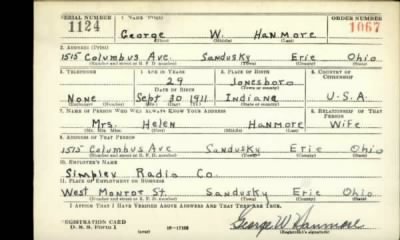 SERIAL NUMBER 1. NAME (Print) ORDER NUMBER
1124 George W. Hanmore 1067
(First) (Middle) (Last)
2. ADDRESS (Print)
1515 Columbus Ave. Sandusky Erie Ohio
(Number and street or R. F. D. number) (Town) (County) (State)
3. TELEPHONE 4. AGE IN YEARS 5. PLACE OF BIRTH 6. COUNTRY OF CITIZENSHIP
29 Jonesboro
DATE OF BIRTH (Town or county)
None Sept 20 1911 Indiana U.S.A.
(Exchange) (Number) (Mo.) (Day) (Yr.) (State or country)
7. NAME OF PERSON WHO WILL ALWAYS KNOW YOUR ADDRESS 8. RELATIONSHIP OF THAT PERSON
Mrs. Helen Hanmore Wife
(Mr., Mrs., Miss) (First) (Middle) (Last)
9. ADDRESS OF THAT PERSON
1515 Columbus Ave Sandusky Erie Ohio
(Number and street or R. F. D. number) (Town) (County) (State)
10. EMPLOYER'S NAME
Radio Co.
11. PLACE OF EMPLOYMENT OR BUSINESS
West St. Sandusky Erie Ohio
(Number and street or R. F. D. number) (Town) (County) (State)
I AFFIRM THAT I HAVE VERIFIED ABOVE ANSWERS AND THAT THEY ARE TRUE.
REGISTRATION CARD George W Hanmore
D. S. S. FORM 1 (over) (Registrant's signature)